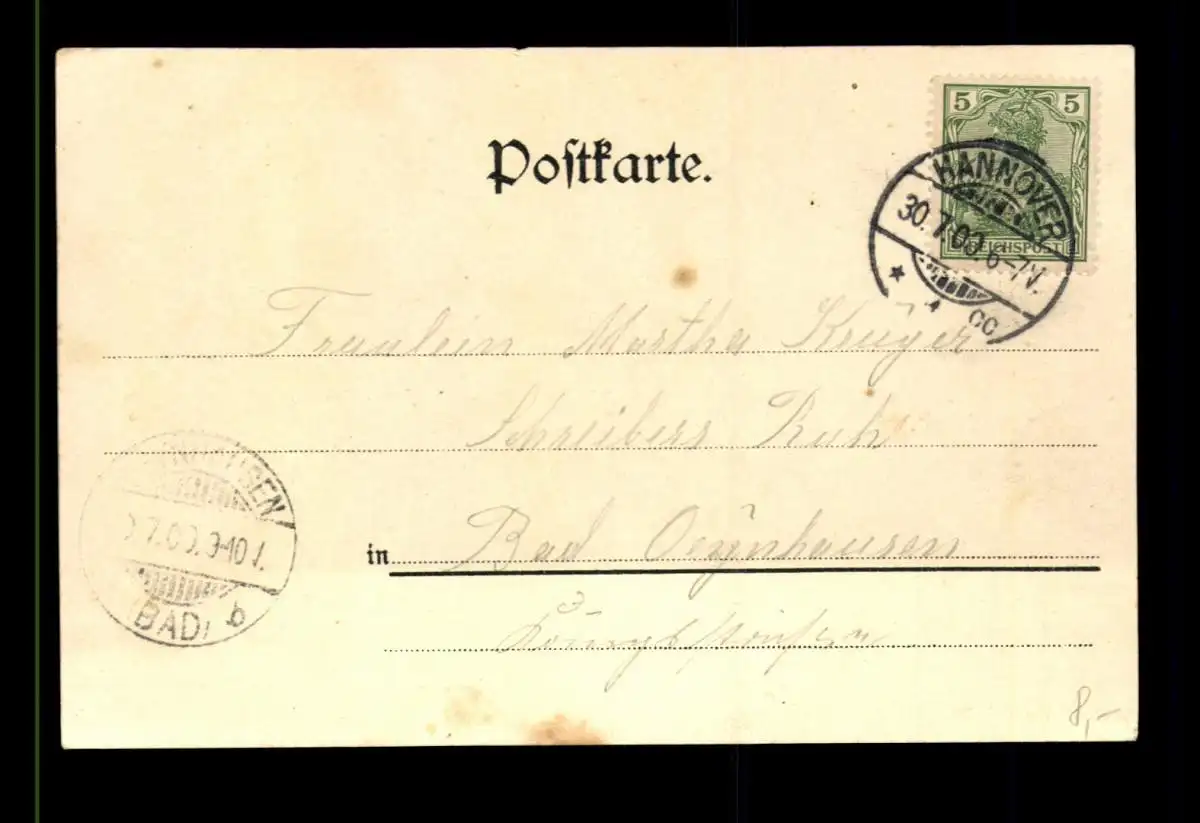 5 5
REICHSPOST
HANNOVER
30.7.00.6-7V.
CC
Postkarte.
Fräulein Martha Krüger
Schreibers Ruh
in Bad Oeynhausen
Königstraße
HAUSEN
7.00.9-10V.
(BAD) b
8,-